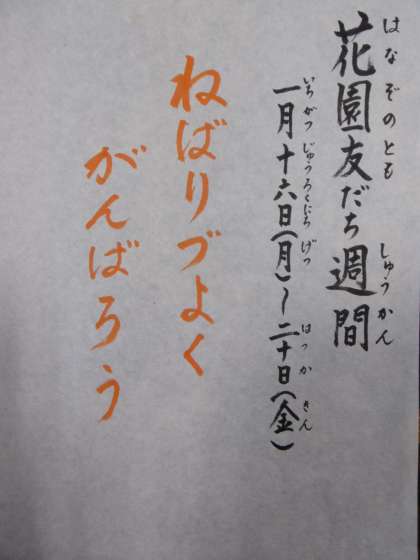 花園友だち週間
はなぞのとも しゅうかん
一月十六日(月)〜二十日(金)
いちがつじゅうろくにちげつ はつかきん
ねばりづよく
がんばろう